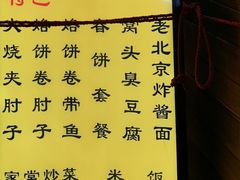 特色
老北京炸醬面
窝头臭豆腐
春饼套餐
烙饼卷带鱼
烙饼卷肘子
火烧夹肘子
家常炒菜 米饭